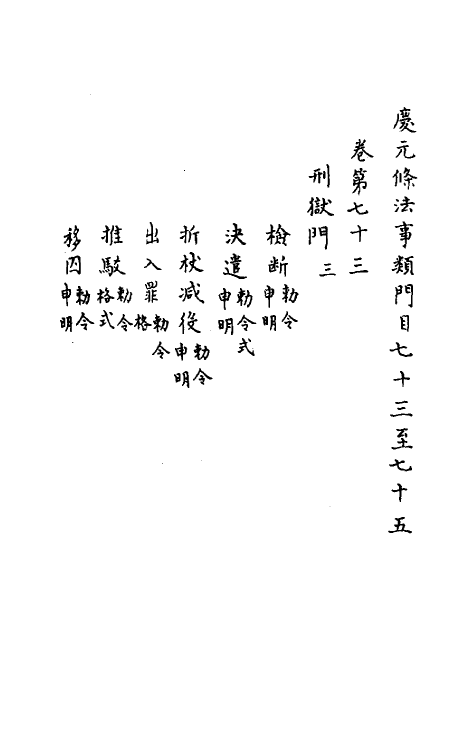 慶元條法事類門目七十三至七十五
卷第七十三
刑獄門三
檢断勅令申明
決遣勅令式申明
折杖減役勅令申明
出入罪勅令格
推駮勅令格式
移囚勅令申明